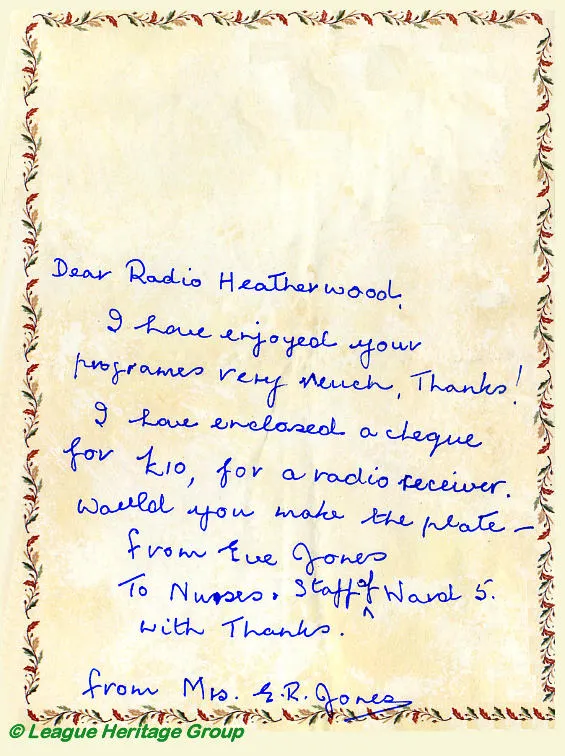 Dear Radio Heatherwood,
I have enjoyed your
programes very much, Thanks!
I have enclosed a cheque
for £10, for a radio receiver.
Would you make the plate –
from Eve Jones
To Nurses. Staff of Ward 5.
with Thanks.
from Mrs. E.R. Jones
© League Heritage Group